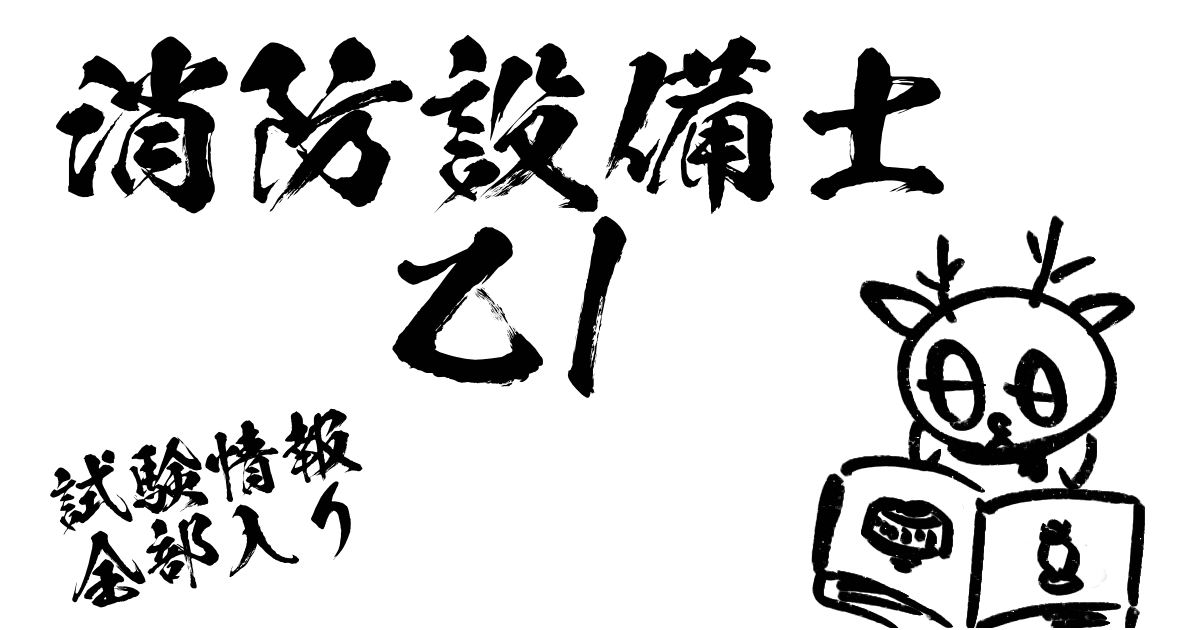 消防設備士
乙1
試験情報
全部入り